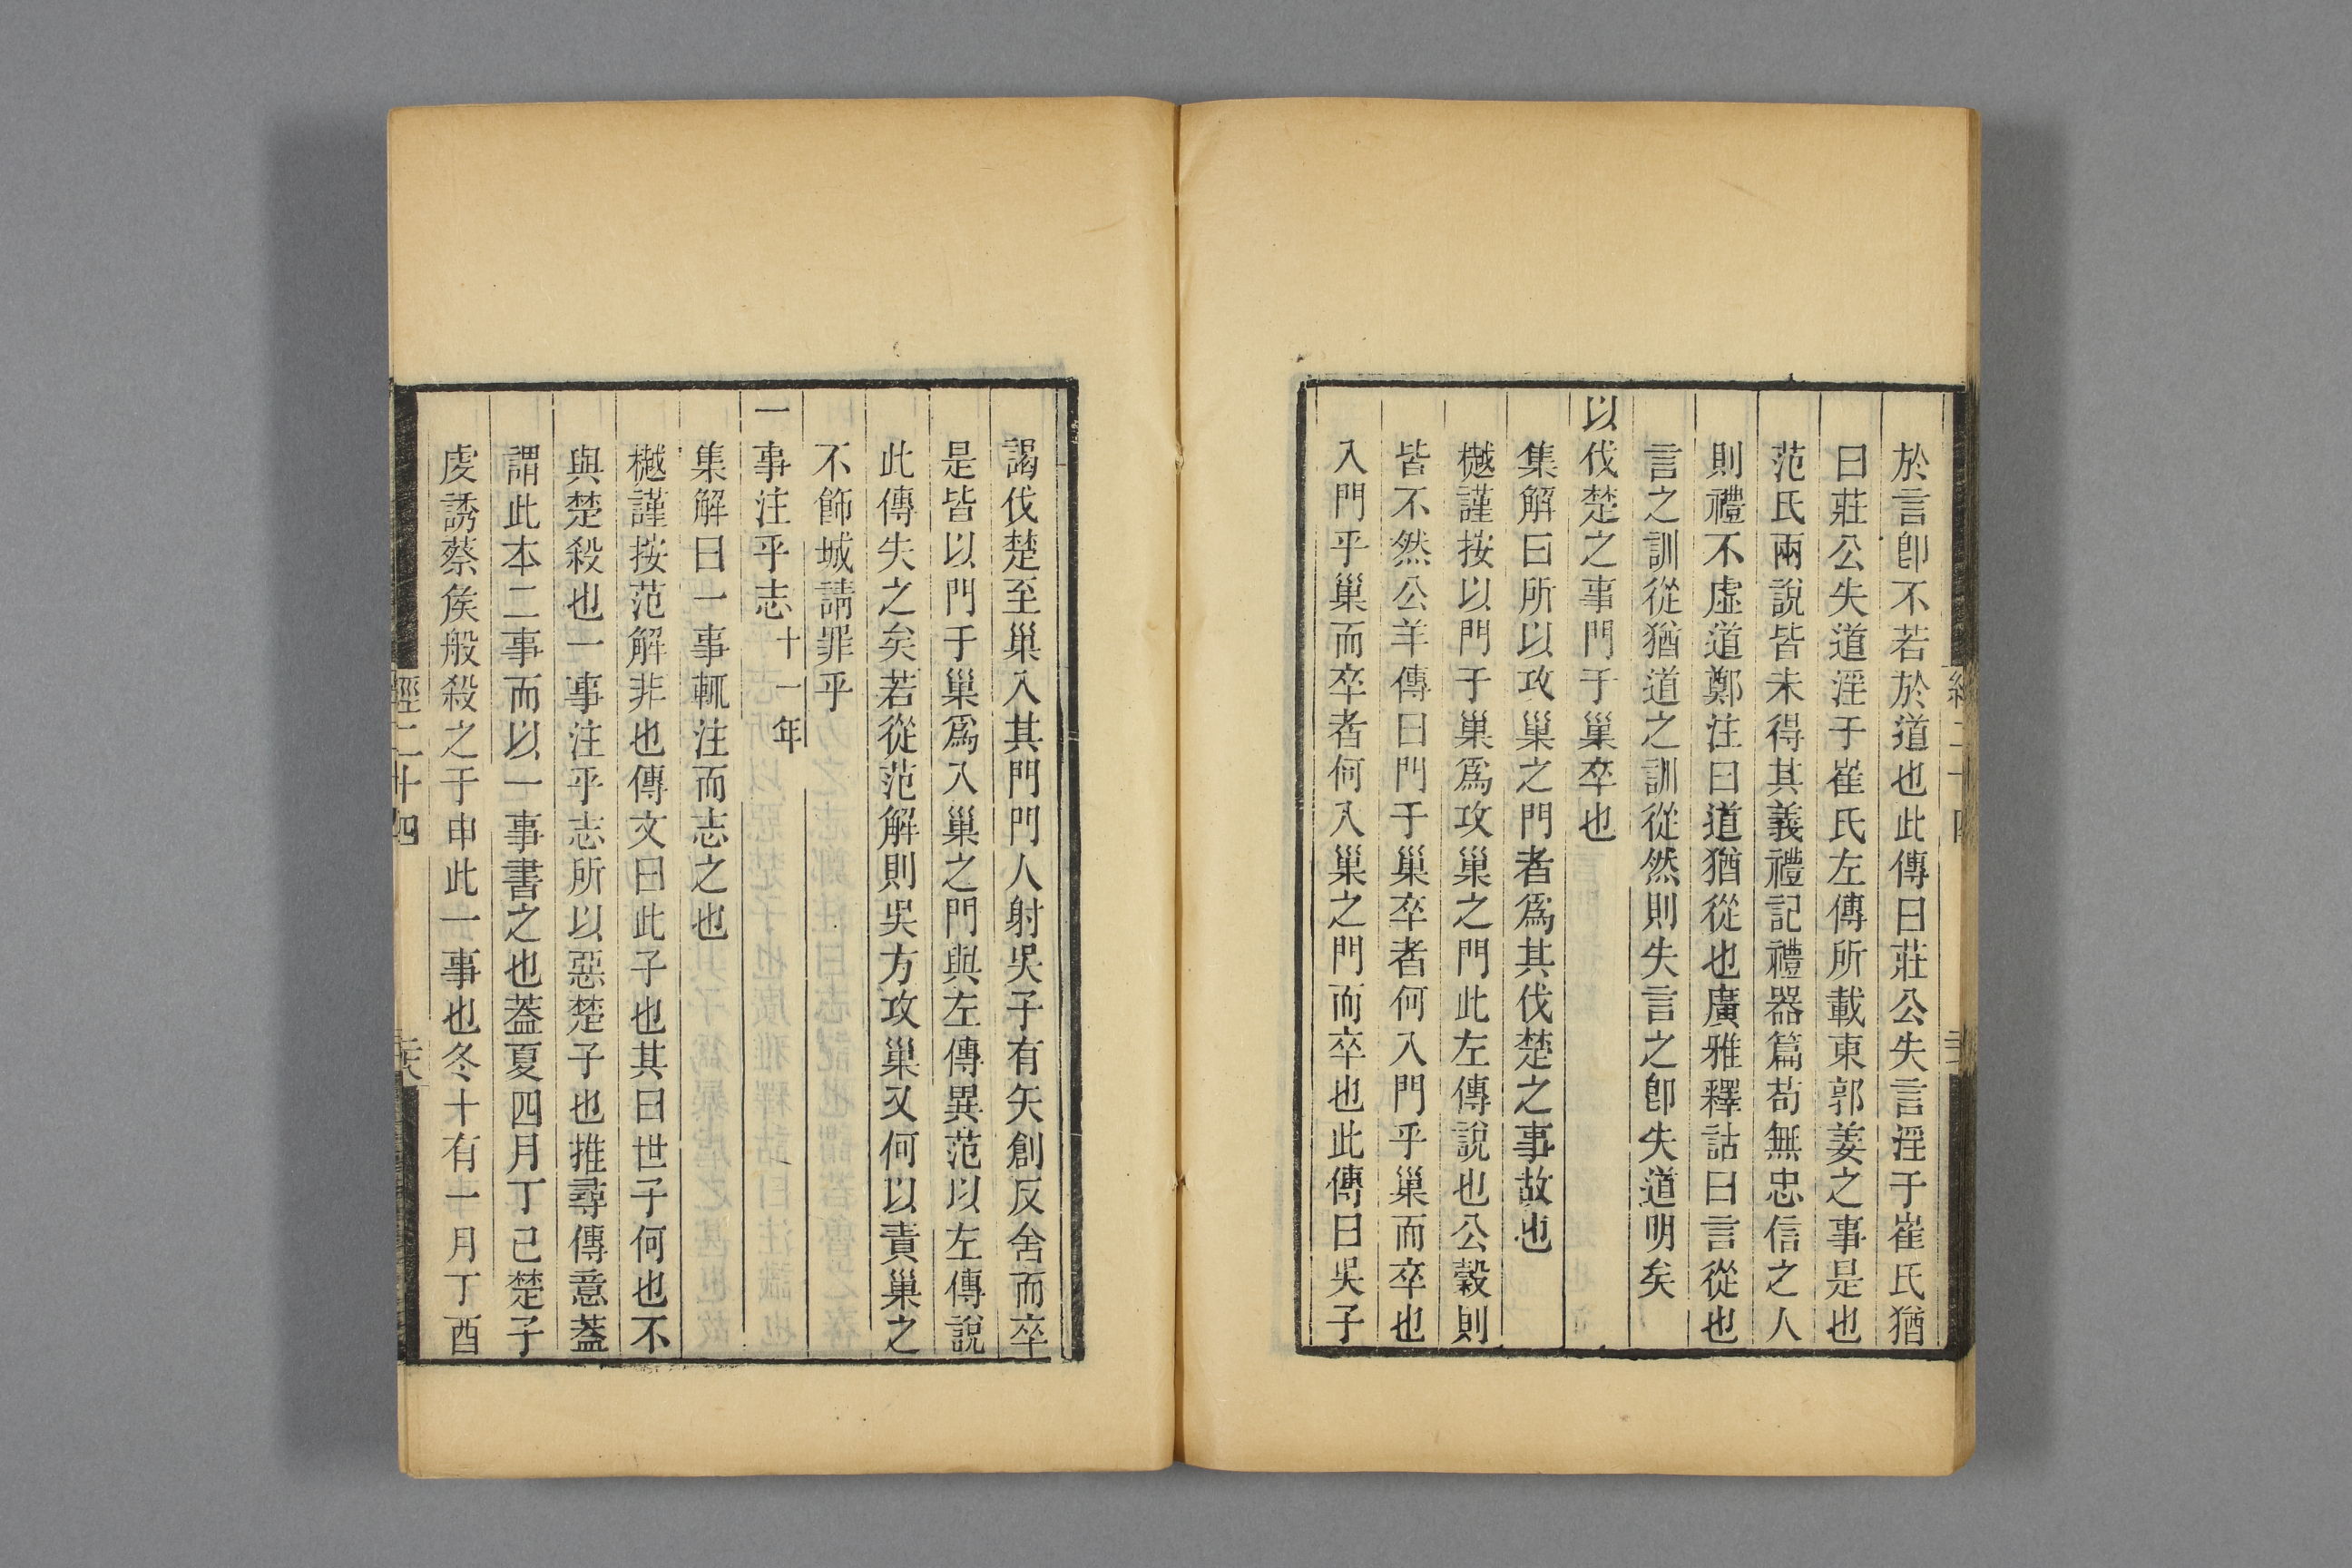 於言卽不若於道也此傳曰莊公失言淫于崔氏猶
曰莊公失道淫于崔氏左傳所載東郭姜之事是也
范氏兩說皆未得其義禮記禮器篇苟無忠信之人
則禮不虛道鄭注曰道猶從也廣雅釋詁曰言從也
言之訓從猶道之訓從然則失言之卽失道明矣
以伐楚之事門于巢卒也
集解曰所以攻巢之門者爲其伐楚之事故也
樾謹按以門于巢爲攻巢之門此左傳說也公穀則
皆不然公羊傳曰門于巢卒者何入門乎巢而卒也
入門乎巢而卒者何入巢之門而卒也此傳曰吳子
謁伐楚至巢入其門門人射吳子有矢創反舍而卒
是皆以門于巢爲入巢之門與左傳異范以左傳說
此傳失之矣若從范解則吳方攻巢又何以責巢之
不飾城請罪乎
一事注乎志十一年
集解曰一事輒注而志之也
樾謹按范解非也傳文曰此子也其曰世子何也不
與楚殺也一事注乎志所以惡楚子也推尋傳意葢
謂此本二事而以一事書之也葢夏四月丁巳楚子
虔誘蔡侯般殺之于申此一事也冬十有一月丁酉
經二十四